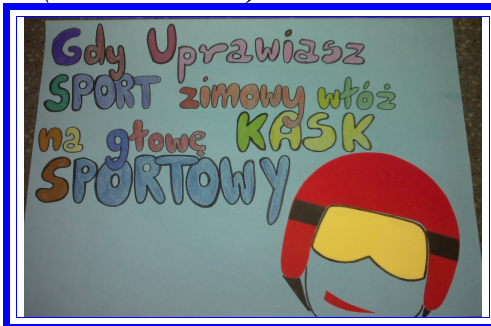 Gdy Uprawiasz
SPORT zimowy włóż
na głowę KASK
SPORTOWY